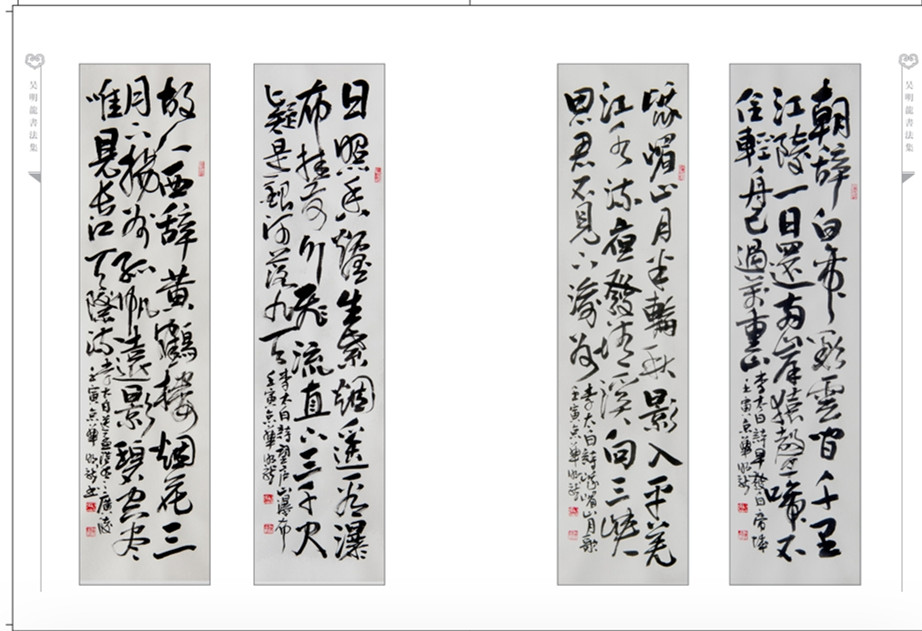 吴明龍書法集
朝辞白帝彩雲間千里
江陵一日還两岸猿聲啼不
住輕舟已過萬重山
李太白詩早發白帝城
壬寅京華明龍
峨嵋山月半輪秋影入平羌
江水流夜發清溪向三峡
思君不見下渝州
李太白詩峨嵋山月歌
壬寅京華明龍
日照香爐生紫烟遥看瀑
布挂前川飛流直下三千尺
疑是銀河落九天
李太白詩望庐山瀑布
壬寅京華明龍
故人西辞黄鶴楼烟花三
月下揚州孤帆遠影碧空尽
唯見長江天際流
李太白送孟浩然之廣陵
壬寅京華明龍书
吴明龍書法集